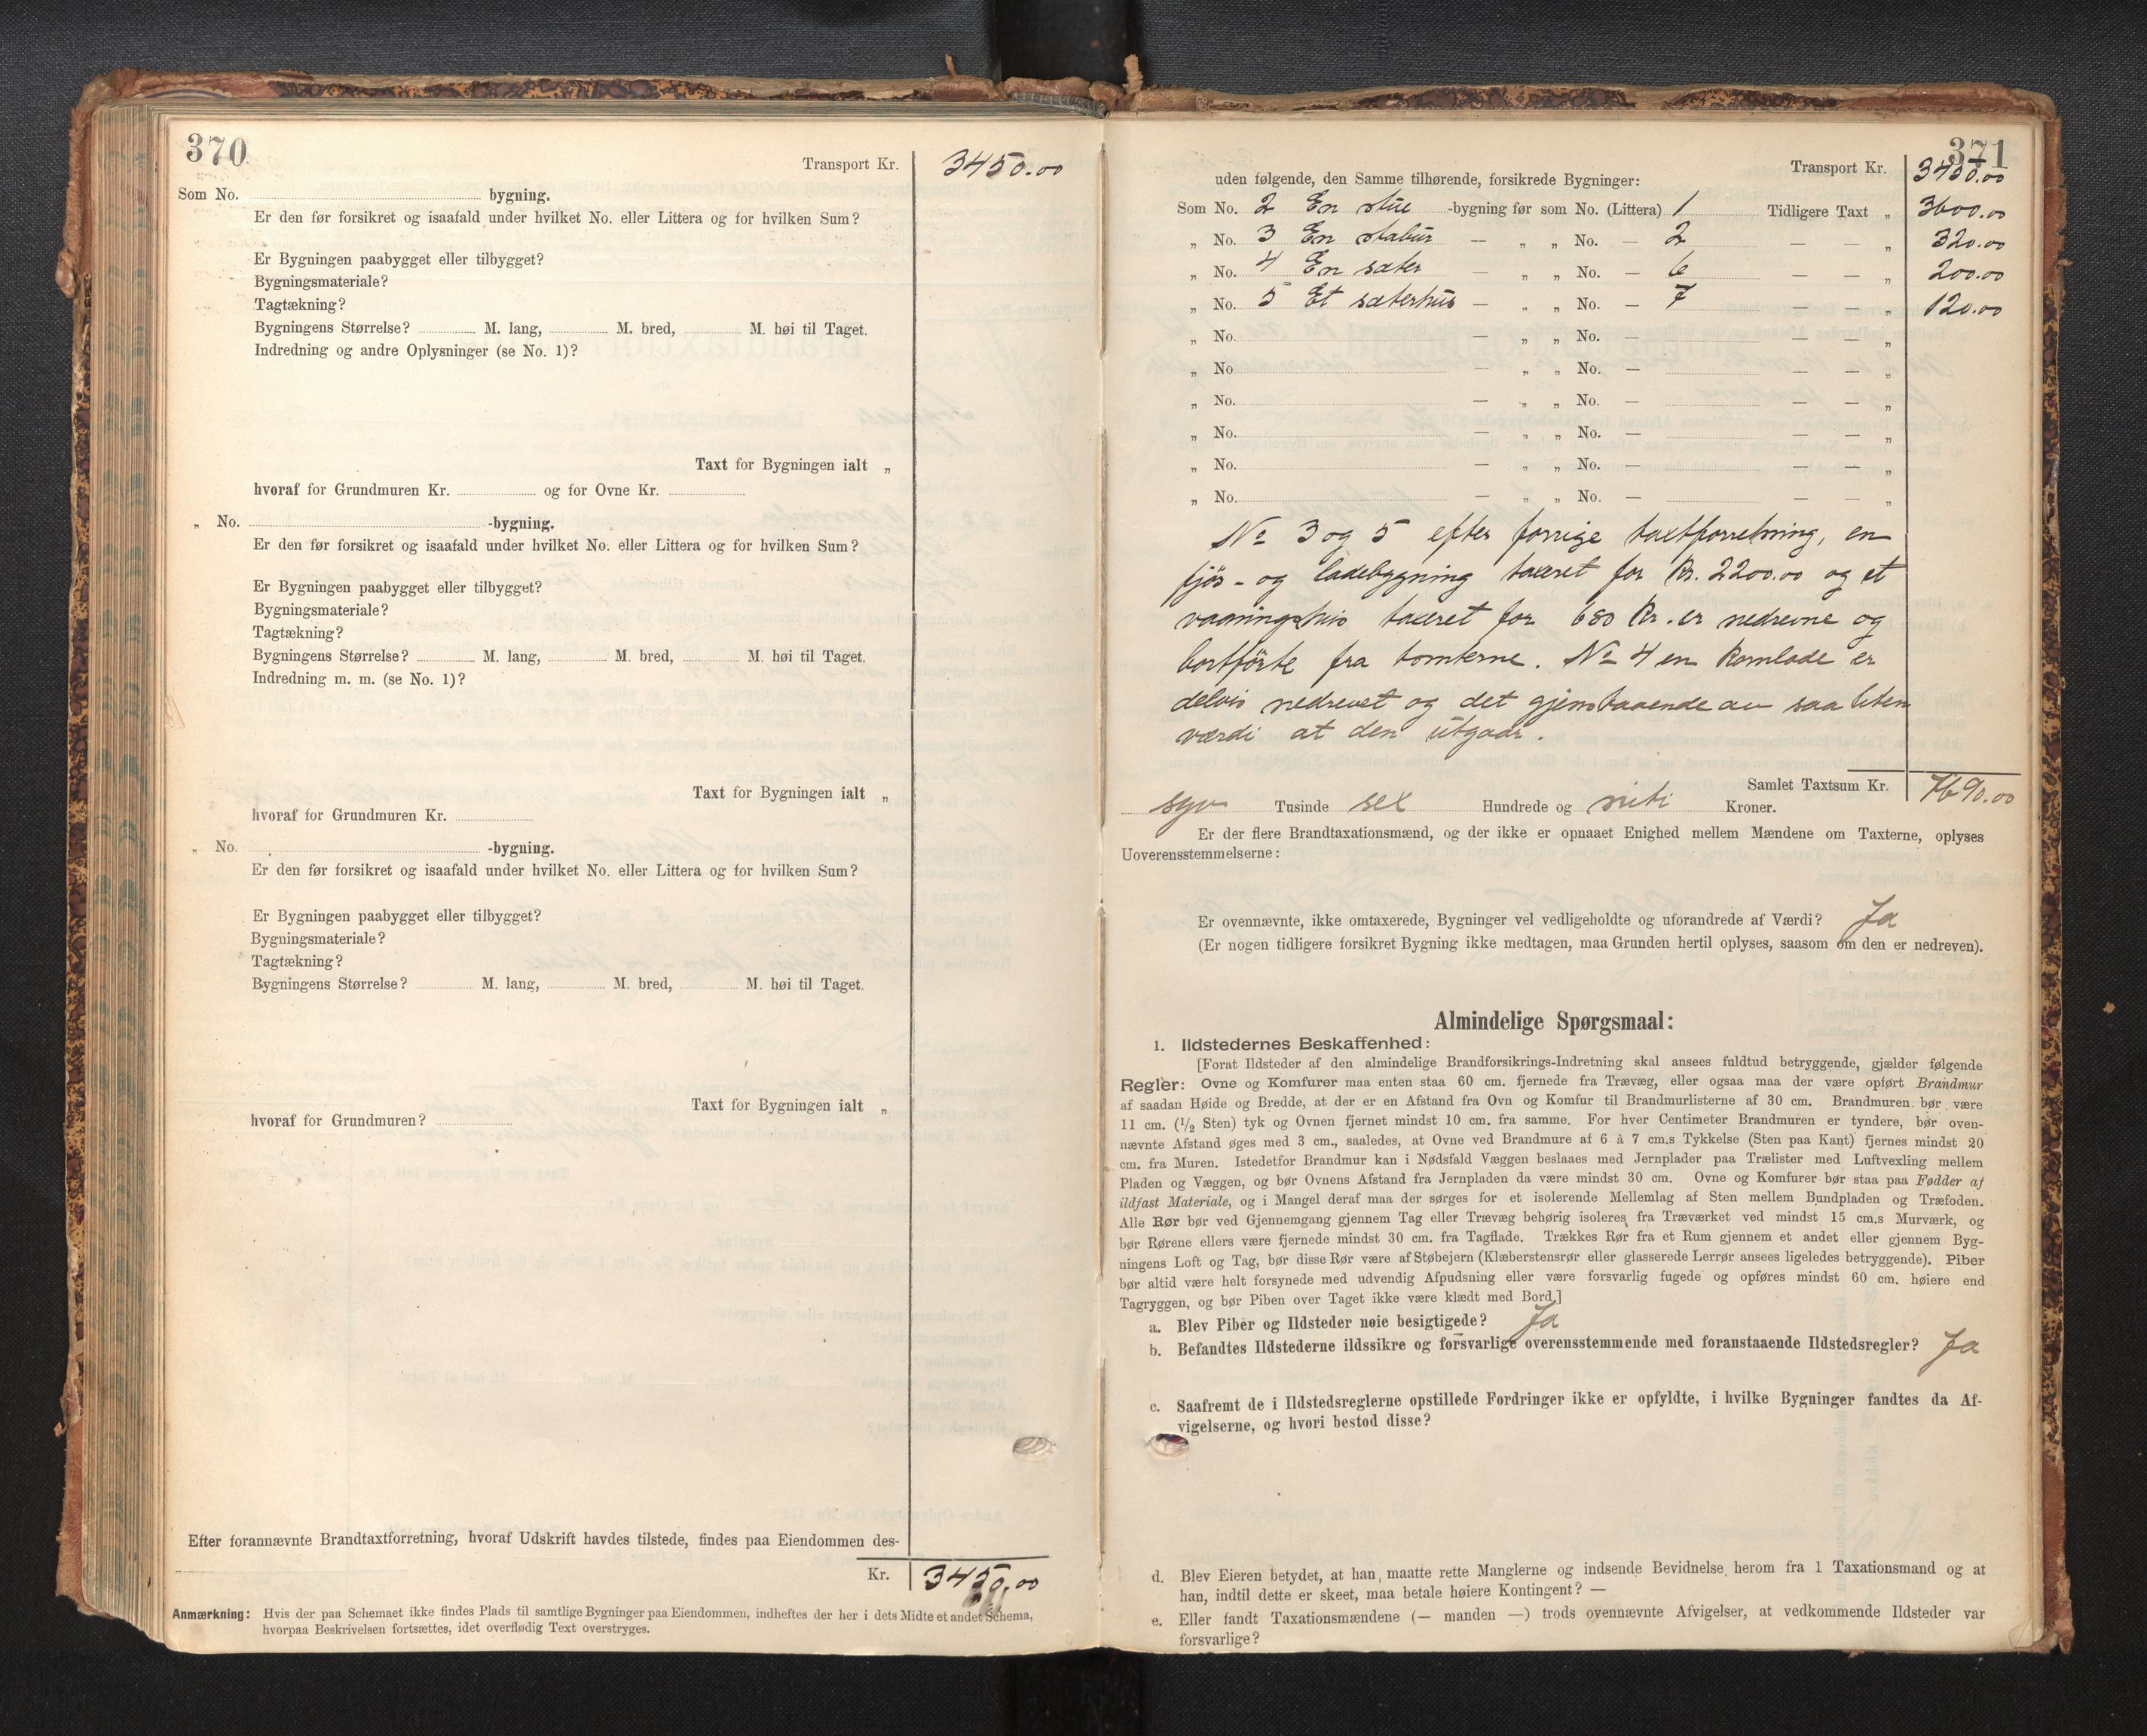 370
Transport Kr. 3450.00
Som No. bygning.
Er den før forsikret og isaafald under hvilket No. eller Littera og for hvilken Sum?
Er Bygningen paabygget eller tilbygget?
Bygningsmateriale?
Tagtækning?
Bygningens Størrelse? M. lang, M. bred, M. høi til Taget.
Indredning og andre Oplysninger (se No. 1)?
Taxt for Bygningen ialt „
hvoraf for Grundmuren Kr. og for Ovne Kr.
„ No. -bygning.
Er den før forsikret og isaafald under hvilket No. eller Littera og for hvilken Sum?
Er Bygningen paabygget eller tilbygget?
Bygningsmateriale?
Tagtækning?
Bygningens Størrelse? M. lang, M. bred, M. høi til Taget.
Indredning m. m. (se No. 1)?
Taxt for Bygningen ialt „
hvoraf for Grundmuren Kr.
„ No. -bygning.
Er den før forsikret og isaafald under hvilket No. eller Littera og for hvilken Sum?
Er Bygningen paabygget eller tilbygget?
Bygningsmateriale?
Tagtækning?
Bygningens Størrelse? M. lang, M. bred, M. høi til Taget.
Taxt for Bygningen ialt „
hvoraf for Grundmuren?
Efter forannævnte Brandtaxtforretning, hvoraf Udskrift havdes tilstede, findes paa Eiendommen des-
Kr. 3450.00
Anmærkning: Hvis der paa Schemaet ikke findes Plads til samtlige Bygninger paa Eiendommen, indheftes der her i dets Midte et andet Schema,
hvorpaa Beskrivelsen fortsættes, idet overflødig Text overstryges.
371
Transport Kr. 3450.00
uden følgende, den Samme tilhørende, forsikrede Bygninger:
Som No. 2 En stue -bygning før som No. (Littera) 1 Tidligere Taxt „ 3600.00
„ No. 3 En stabur — „ „ No. — 2 — — „ 320.00
„ No. 4 En sæter — „ „ No. — 6 — — „ 200.00
„ No. 5 Et sæterhus — „ „ No. — 7 — — „ 120.00
„ No. — „ „ No. — — — „
„ No — „ „ No. — — — „
„ No. — „ „ No. — — — „
„ No. — „ „ No. — — — „
„ No. — „ „ No. — — — „
„ No. — „ „ No. — — — „
No 3 og 5 efter forrige taxtforretning, en
fjös- og ladebygning taxeret for Kr. 2200.00 og et
vaaningshus taxeret for 680 Kr. er nedrevne og
bortförte fra tomterne. No 4 en Kornlade er
delvis nedrevet og det gjenstaaende av saa liten
værdi at den utgaar.
Samlet Taxtsum Kr. 7690.00
syv Tusinde sex Hundrede og nitti Kroner.
Er der flere Brandtaxationsmænd, og der ikke er opnaaet Enighed mellem Mændene om Taxterne, oplyses
Uoverensstemmelserne:
Er ovennævnte, ikke omtaxerede, Bygninger vel vedligeholdte og uforandrede af Værdi? Ja
(Er nogen tidligere forsikret Bygning ikke medtagen, maa Grunden hertil oplyses, saasom om den er nedreven).
Almindelige Spørgsmaal:
1. Ildstedernes Beskaffenhed:
[Forat Ildsteder af den almindelige Brandforsikrings-Indretning skal ansees fuldtud betryggende, gjælder følgende
Regler: Ovne og Komfurer maa enten staa 60 cm. fjernede fra Trævæg, eller ogsaa maa der være opført Brandmur
af saadan Høide og Bredde, at der er en Afstand fra Ovn og Komfur til Brandmurlisterne af 30 cm. Brandmuren bør være
11 cm. (1/2 Sten) tyk og Ovnen fjernet mindst 10 cm. fra samme. For hver Centimeter Brandmuren er tyndere, bør oven-
nævnte Afstand øges med 3 cm., saaledes, at Ovne ved Brandmure af 6 à 7 cm.s Tykkelse (Sten paa Kant) fjernes mindst 20
cm. fra Muren. Istedetfor Brandmur kan i Nødsfald Væggen beslaaes med Jernplader paa Trælister med Luftvexling mellem
Pladen og Væggen, og bør Ovnens Afstand fra Jernpladen da være mindst 30 cm. Ovne og Komfurer bør staa paa Fødder af
ildfast Materiale, og i Mangel deraf maa der sørges for et isolerende Mellemlag af Sten mellem Bundpladen og Træfoden.
Alle Rør bør ved Gjennemgang gjennem Tag eller Trævæg behørig isoleres fra Træværket ved mindst 15 cm.s Murværk, og
bør Rørene ellers være fjernede mindst 30 cm. fra Tagflade. Trækkes Rør fra et Rum gjennem et andet eller gjennem Byg-
ningens Loft og Tag, bør disse Rør være af Støbejern (Klæberstensrør eller glasserede Lerrør ansees ligeledes betryggende). Piber
bør altid være helt forsynede med udvendig Afpudsning eller være forsvarlig fugede og opføres mindst 60 cm. høiere end
Tagryggen, og bør Piben over Taget ikke være klædt med Bord.]
a. Blev Piber og Ildsteder nøie besigtigede? Ja
b. Befandtes Ildstederne ildssikre og forsvarlige overensstemmende med foranstaaende Ildstedsregler? Ja
c. Saafremt de i Ildstedsreglerne opstillede Fordringer ikke er opfyldte, i hvilke Bygninger fandtes da Af-
vigelserne, og hvori bestod disse?
d. Blev Eieren betydet, at han maatte rette Manglerne og indsende Bevidnelse herom fra 1 Taxationsmand og at
han, indtil dette er skeet, maa betale høiere Kontingent? —
e. Eller fandt Taxationsmændene (— manden —) trods ovennævnte Afvigelser, at vedkommende Ildsteder var
forsvarlige?